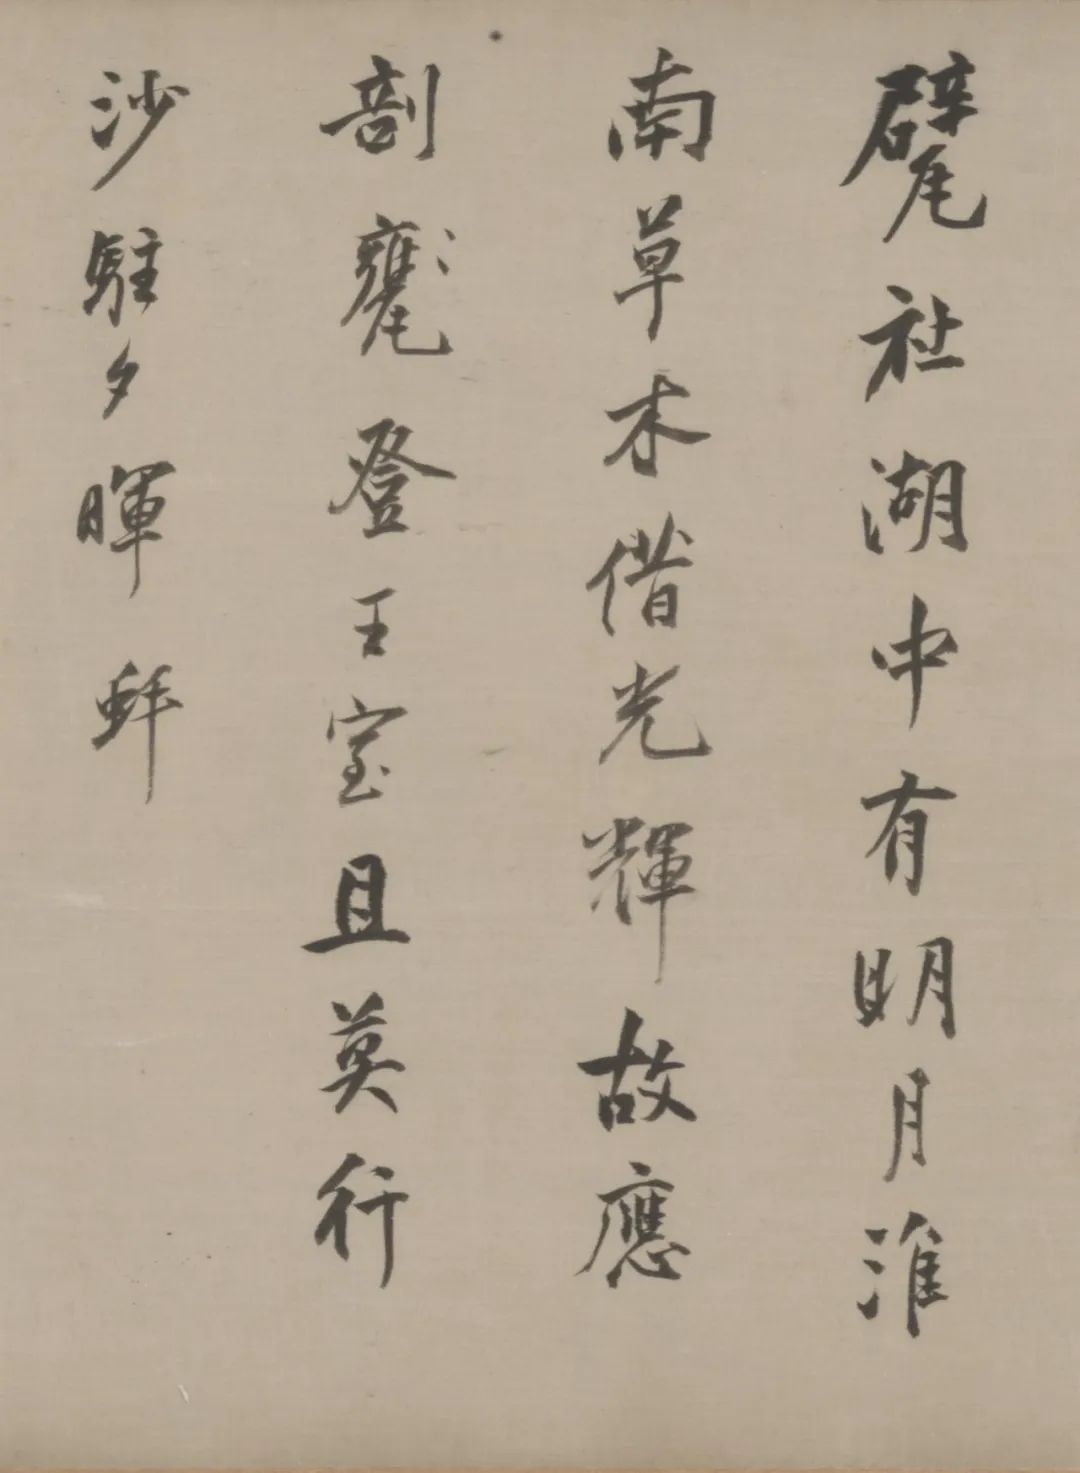 甓社湖中有明月淮
南草木借光輝故應
剖登王室且莫行
沙駐夕暉 蚌